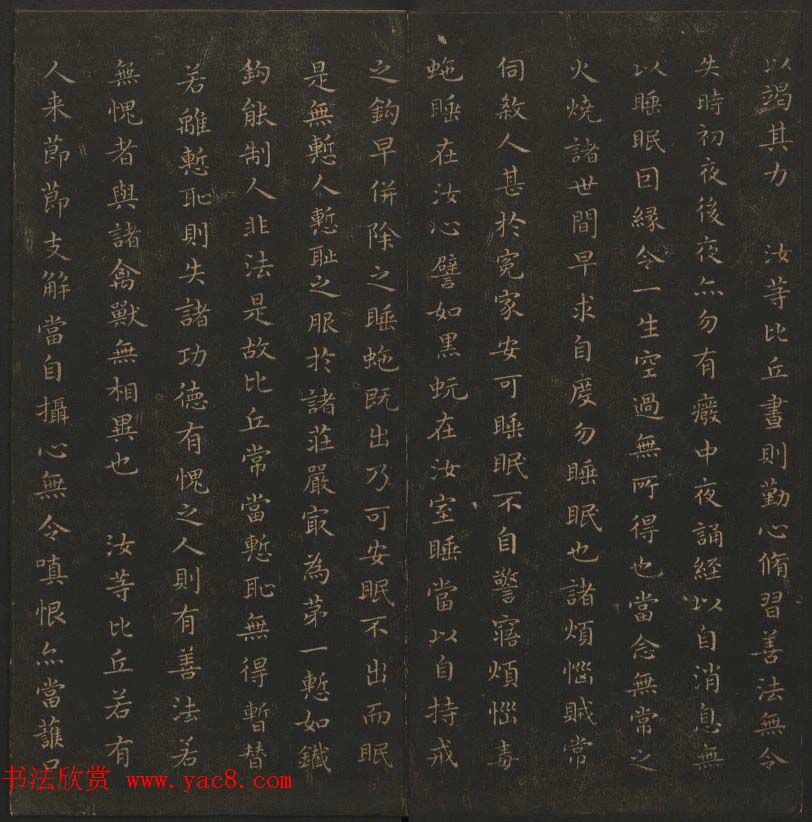 以竭其力　汝等比丘晝則勤心脩習善法無令
失時初夜後夜亦勿有癈中夜誦經以自消息無
以睡眠因緣令一生空過無所得也當念無常之
火燒諸世間早求自度勿睡眠也諸煩惱賊常
伺煞人甚於寃家安可睡眠不自警寤煩惱毒
虵睡在汝心譬如黑蚖在汝室睡當以自持戒
之鈎早併除之睡虵既出乃可安眠不出而眠
是無慙人慙耻之服於諸莊嚴寂為苐一慙如鐵
鈎能制人非法是故比丘常當慙恥無得暫替
若離慙恥則失諸功德有愧之人則有善法若
無愧者與諸禽獸無相異也　汝等比丘若有
人来莭莭支解當自攝心無令嗔恨亦當護口
书法欣赏 www.yac8.com